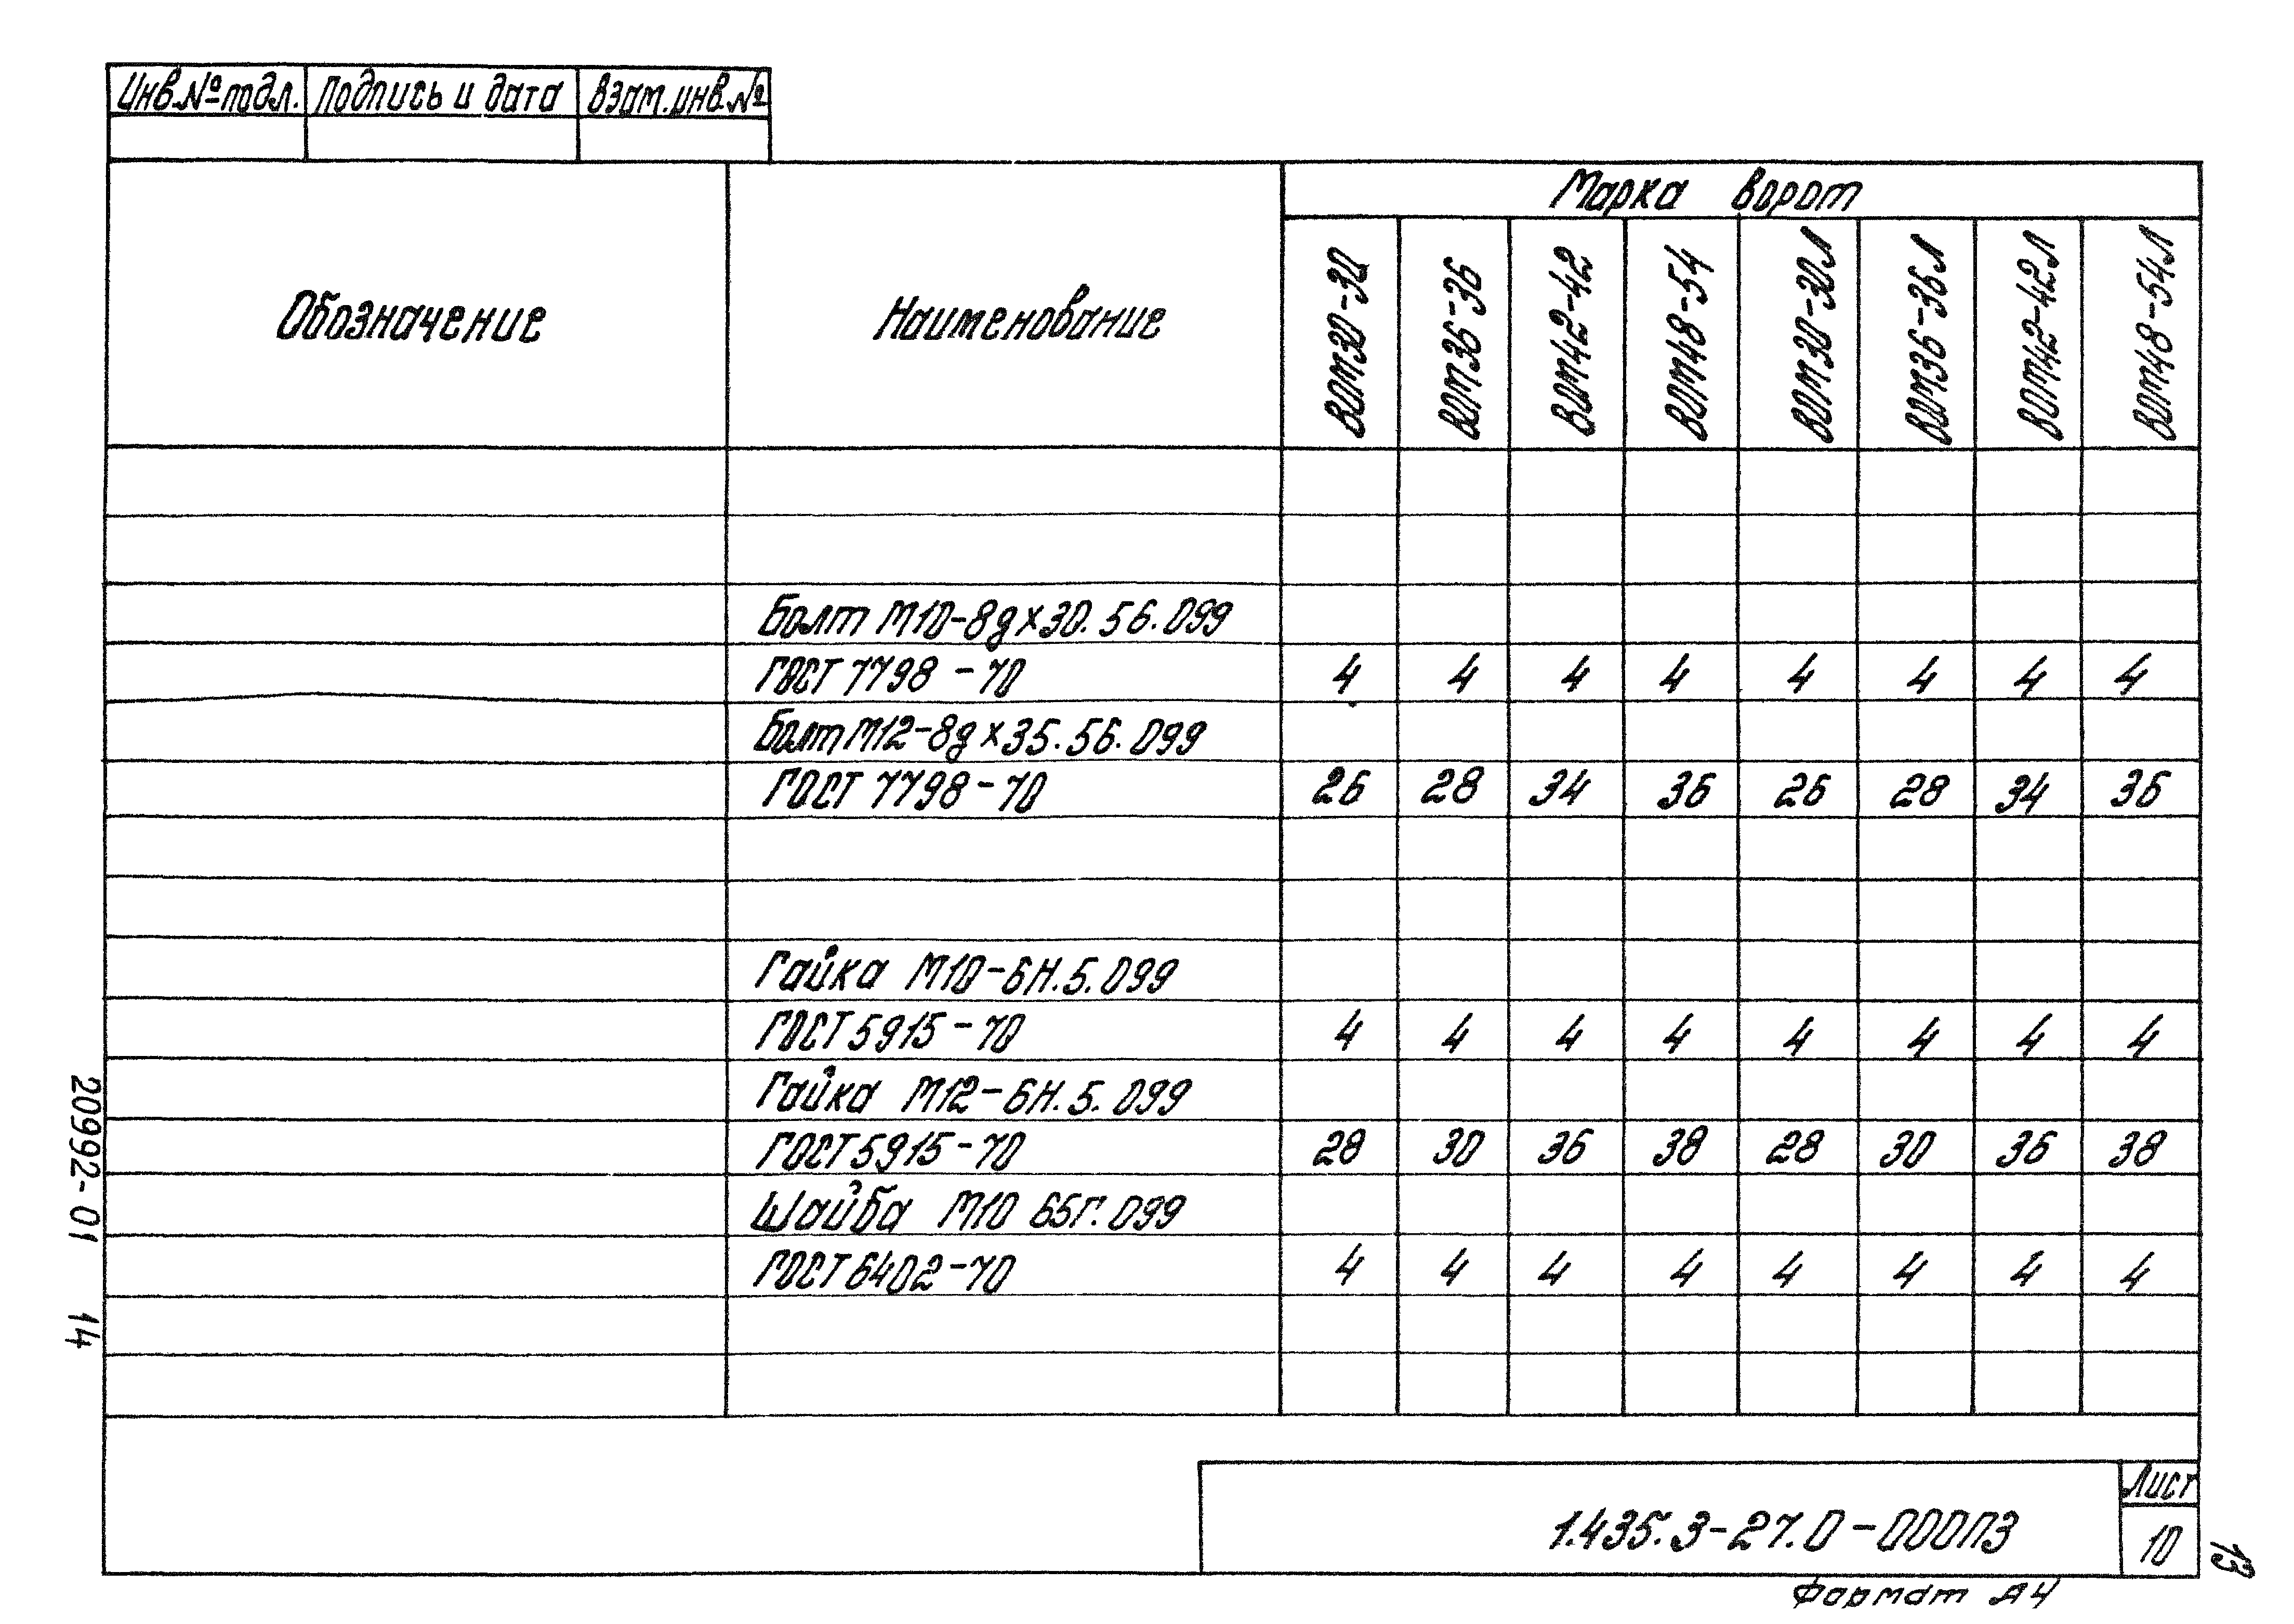 Инв.№ подл. Подпись и дата Взам.инв.№
Обозначение Наименование Марка ворот
ВОМ30-30 ВОМ36-36 ВОМ42-42 ВОМ48-54 ВОМ30-30Л ВОМ36-36Л ВОМ42-42Л ВОМ48-54Л
Болт М10-8gх30.56.099
ГОСТ 7798-70 4 4 4 4 4 4 4 4
Болт М12-8gх35.56.099
ГОСТ 7798-70 26 28 34 36 26 28 34 36
Гайка М10-6Н.5.099
ГОСТ 5915-70 4 4 4 4 4 4 4 4
Гайка М12-6Н.5.099
ГОСТ 5915-70 28 30 36 38 28 30 36 38
Шайба М10 65Г.099
ГОСТ 6402-70 4 4 4 4 4 4 4 4
20992-01 14
1.435.3-27.0-000ПЗ
Лист
10
13
Формат А4